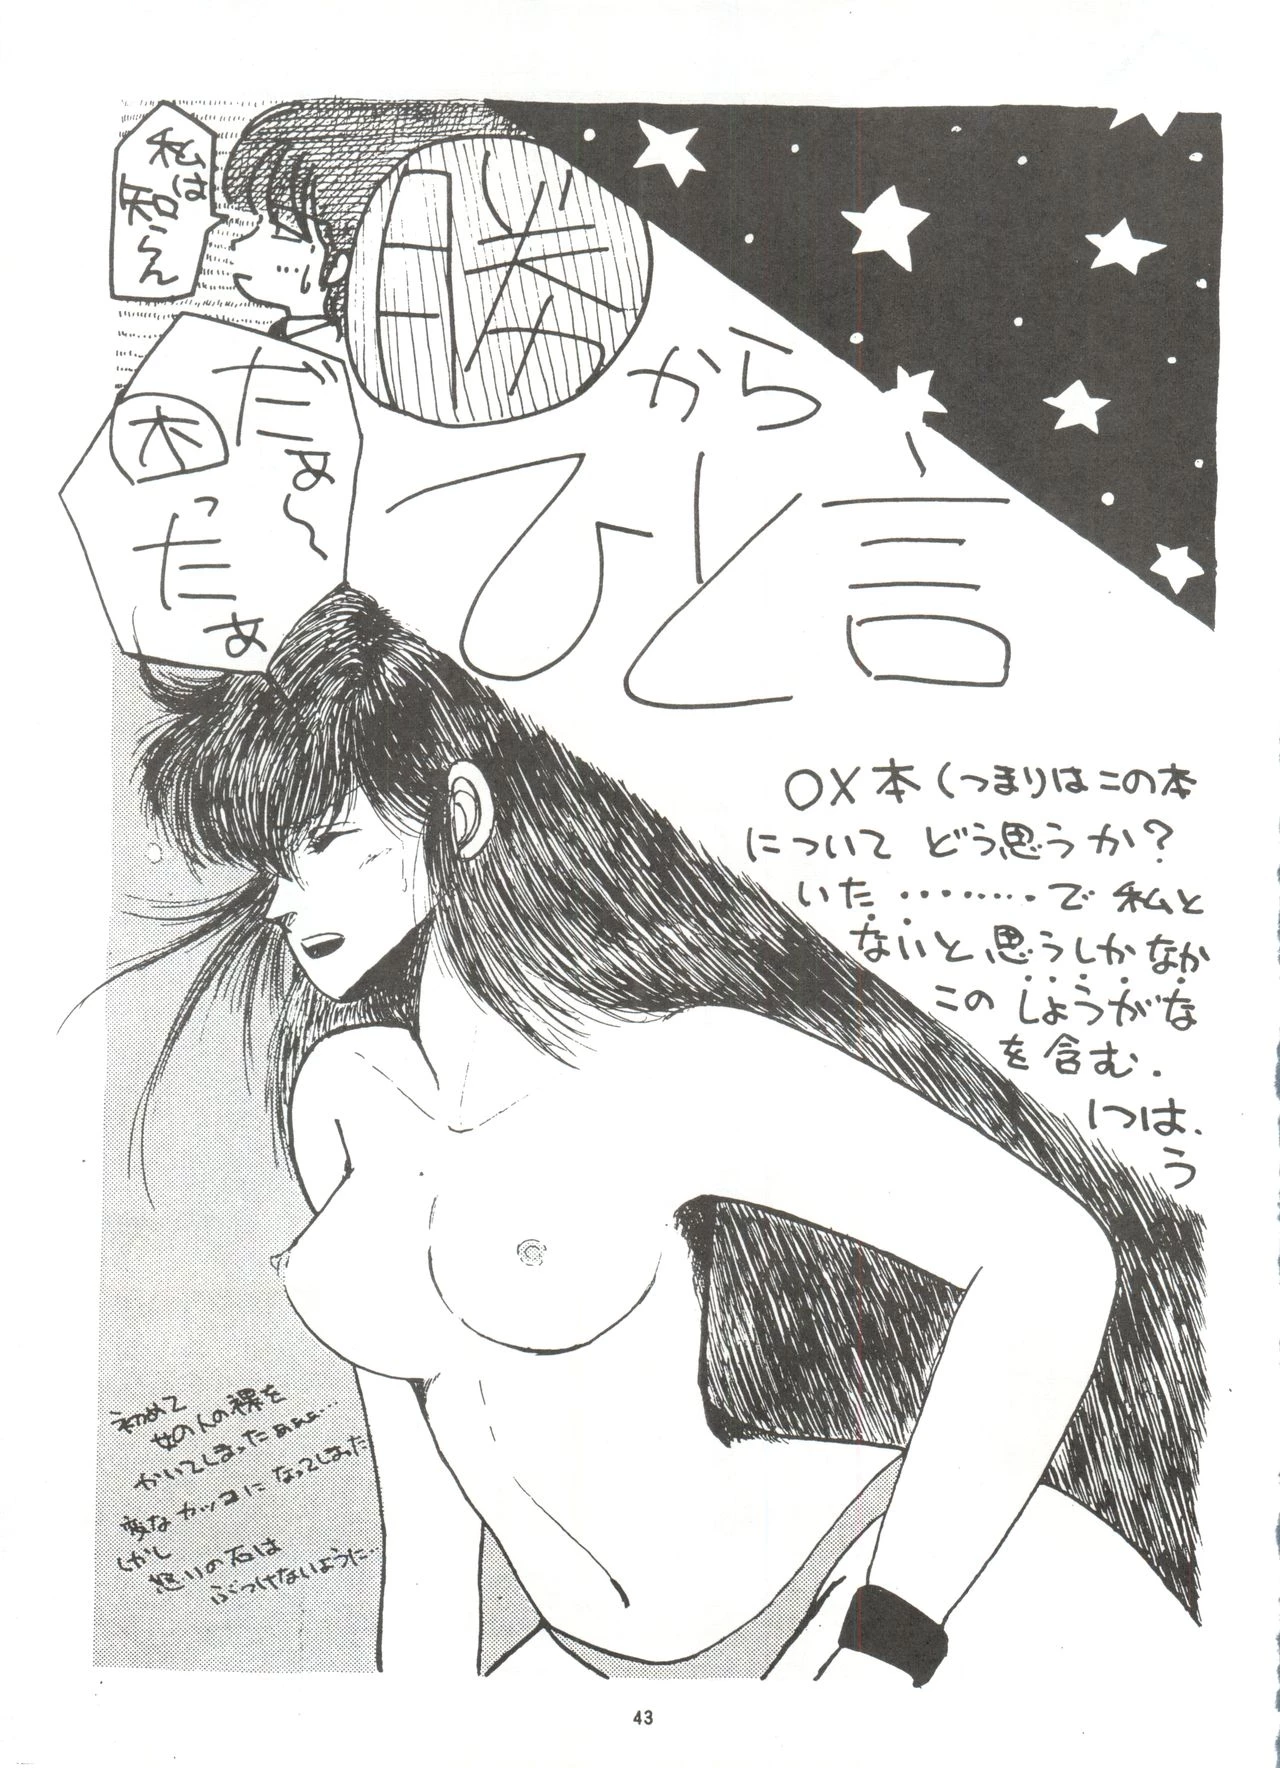 私は
知らん
だぁ〜
困ったぁ
咲
から
ひと言
OX本(つまりはこの本
について どう思うか?
いた・・・・・・・・で 私と
ないと思うしかなか
この しょうがな
を含む.
1つは、
う
初めて
女の人の裸を
かいてしまったぁぁぁ…
変なカッコになってしまった
しかし
怒りの石は
ぶつけないように…
43